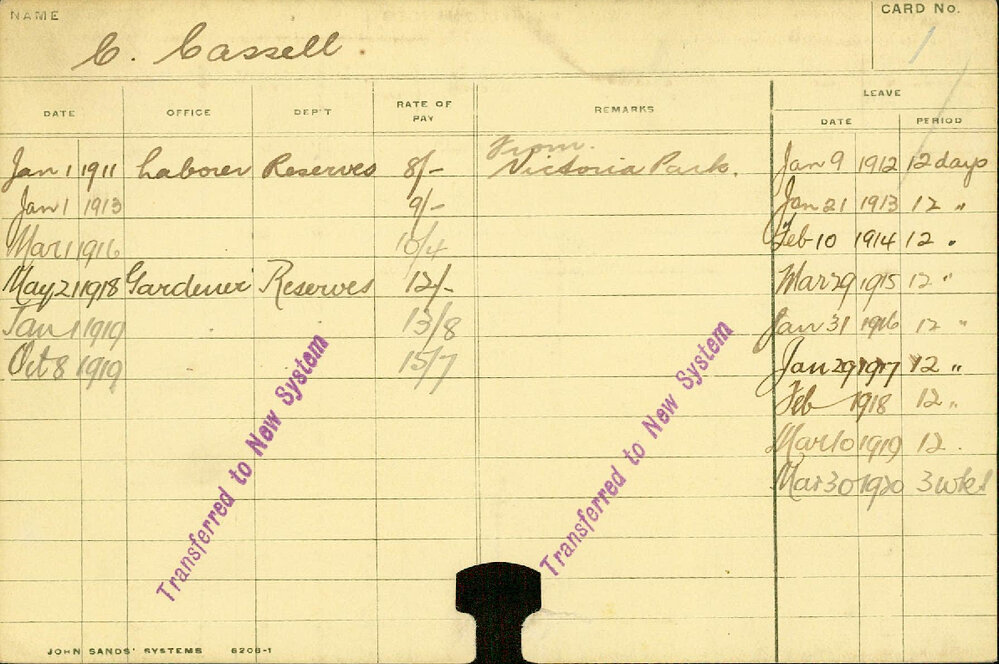 NAME
C. Cassell
CARD No.
1
DATE OFFICE DEP'T RATE OF PAY REMARKS LEAVE DATE PERIOD
Jan 1 1911 Laborer Reserves 8/- From Victoria Park. Jan 9 1912 12 days
Jan 1 1913 9/- Jan 21 1913 12 "
Mar 1 1916 10/4 Feb 10 1914 12 "
May 21 1918 Gardener Reserves 12/- Mar 29 1915 12 "
Jan 1 1919 13/8 Jan 31 1916 12 "
Oct 8 1919 15/7 Jan 29 1917 12 "
Feb 1918 12 "
Mar 10 1919 12 "
Mar 30 1920 3 wks
Transferred to New System
Transferred to New System
JOHN SANDS' SYSTEMS 6208-1